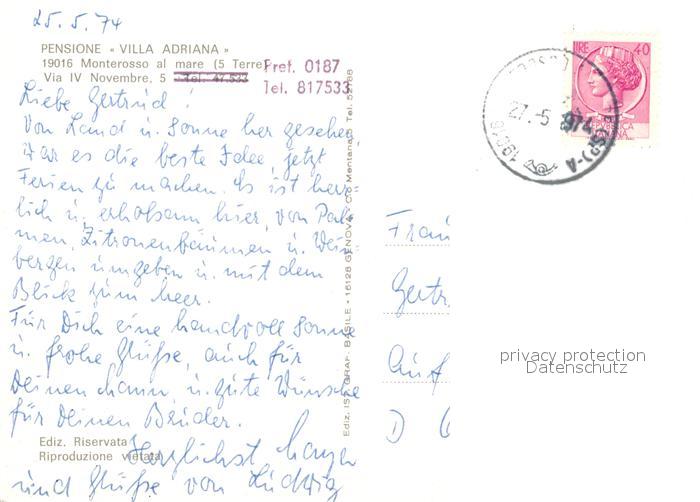 25.5.74
PENSIONE « VILLA ADRIANA »
19016 Monterosso al mare (5 Terre)
Via IV Novembre, 5 - Tel. 47.533
Pref. 0187
Tel. 817533
Liebe Gertrud!
Von Land u. Sonne her gesehen
war es die beste Idee, jetzt
Ferien zu machen. Es ist herr-
lich u. erholsam hier, von Pal-
men, Zitronenbäumen u. Wein-
bergen umgeben u. mit dem
Blick zum Meer.
Für Dich eine handvoll Sonne
u. frohe Grüße, auch für
Deinen Mann, u. gute Wünsche
für Deinen Bruder.
Herzlichst
und Grüße von Ludwig
Ediz. Riservata
Riproduzione vietata
Ediz. IST. GRAF. BASILE - 16128 GENOVA - CC Montenato Tel. 52788
LIRE 40
REPVBBLICA
ITALIANA
19016
27.-5 1974
(SP)-A
Frau
Gertr.
D 6
privacy protection
Datenschutz